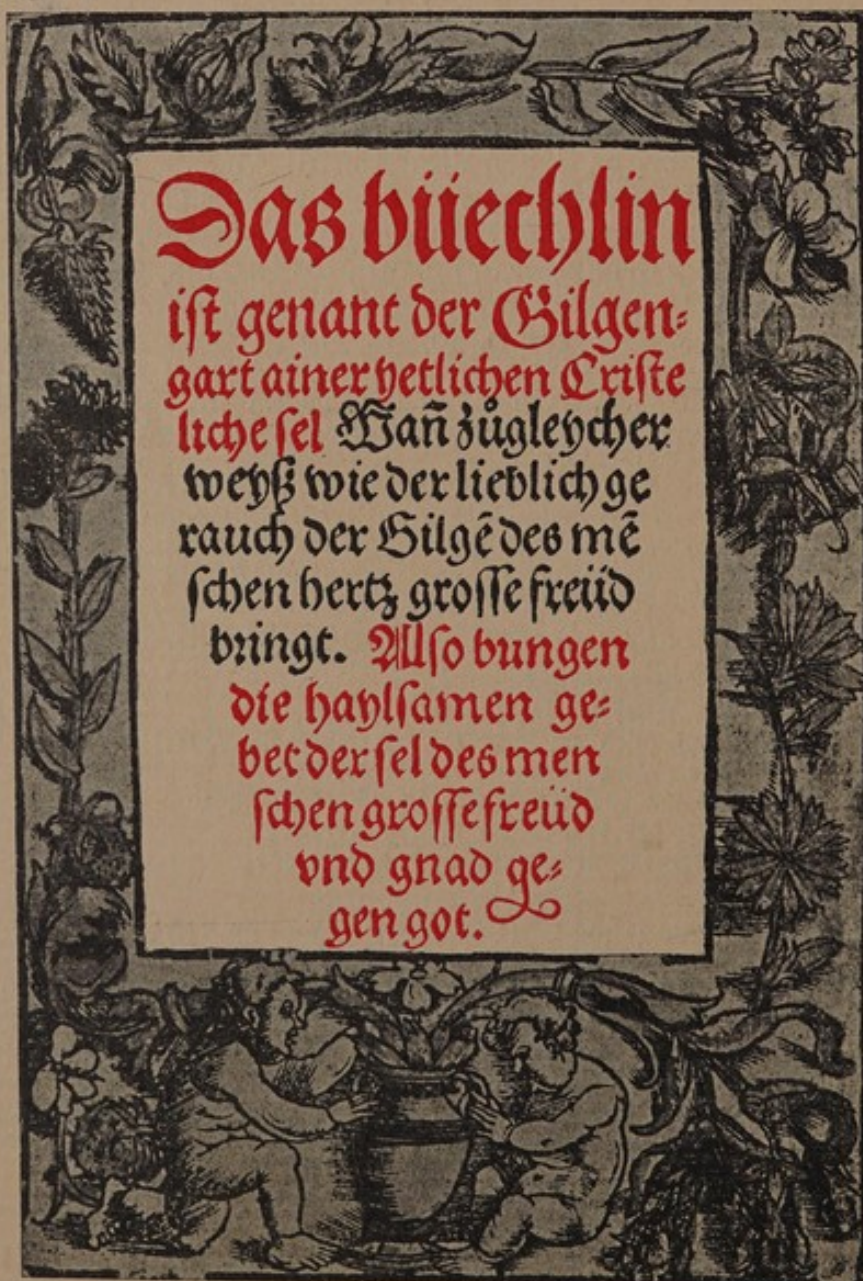 Das büechlin
ist genant der Gilgen⸗
gart ainer yetlichen Criste
liche sel Wañ zůgleycher
weyß wie der lieblich ge
rauch der Gilgē des mē
schen hertz grosse freüd
bringt. Also bringen
die haylsamen ge⸗
bet der sel des men
schen grosse freüd
vnd gnad ge⸗
gen got.